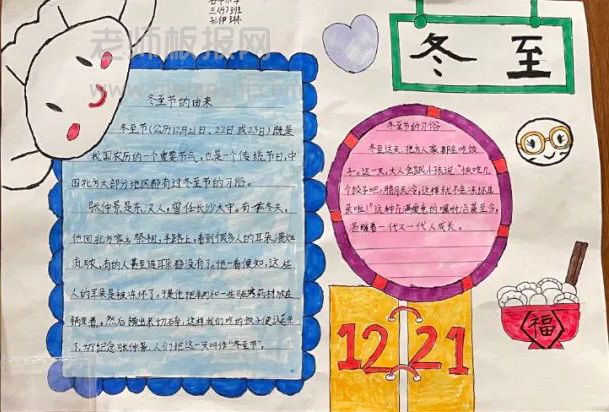 老师板报网
三(4)班
冬至
冬至节的由来
冬至节(公历12月21日、22日或23日)既是
我国农历的一个重要节气,也是一个传统节日,中
国北方大部分地区都有过冬至节的习俗。
张仲景是东汉人,曾任长沙太守。有一年冬天,
他回北方家乡祭祖,半路上,看到很多人的耳朵
有的人甚至连耳朵都没有了。他一看便知,这些
人的耳朵是被冻坏了。于是他把羊肉和一些驱寒药材放在
锅里煮,然后捞出来切碎,这样我们吃的饺子便诞生
了,为了纪念张仲景,人们把这一天叫作“冬至节”。
冬至节的习俗
冬至这天,北方人家都会吃饺
子。这一天,大人会跟小孩说:“快吃几
个饺子吧,腊月天冷,这样就不会冻坏耳
朵啦!”这种充满爱意的嘱咐沿袭至今,
温暖着一代又一代人成长。
12 21
福